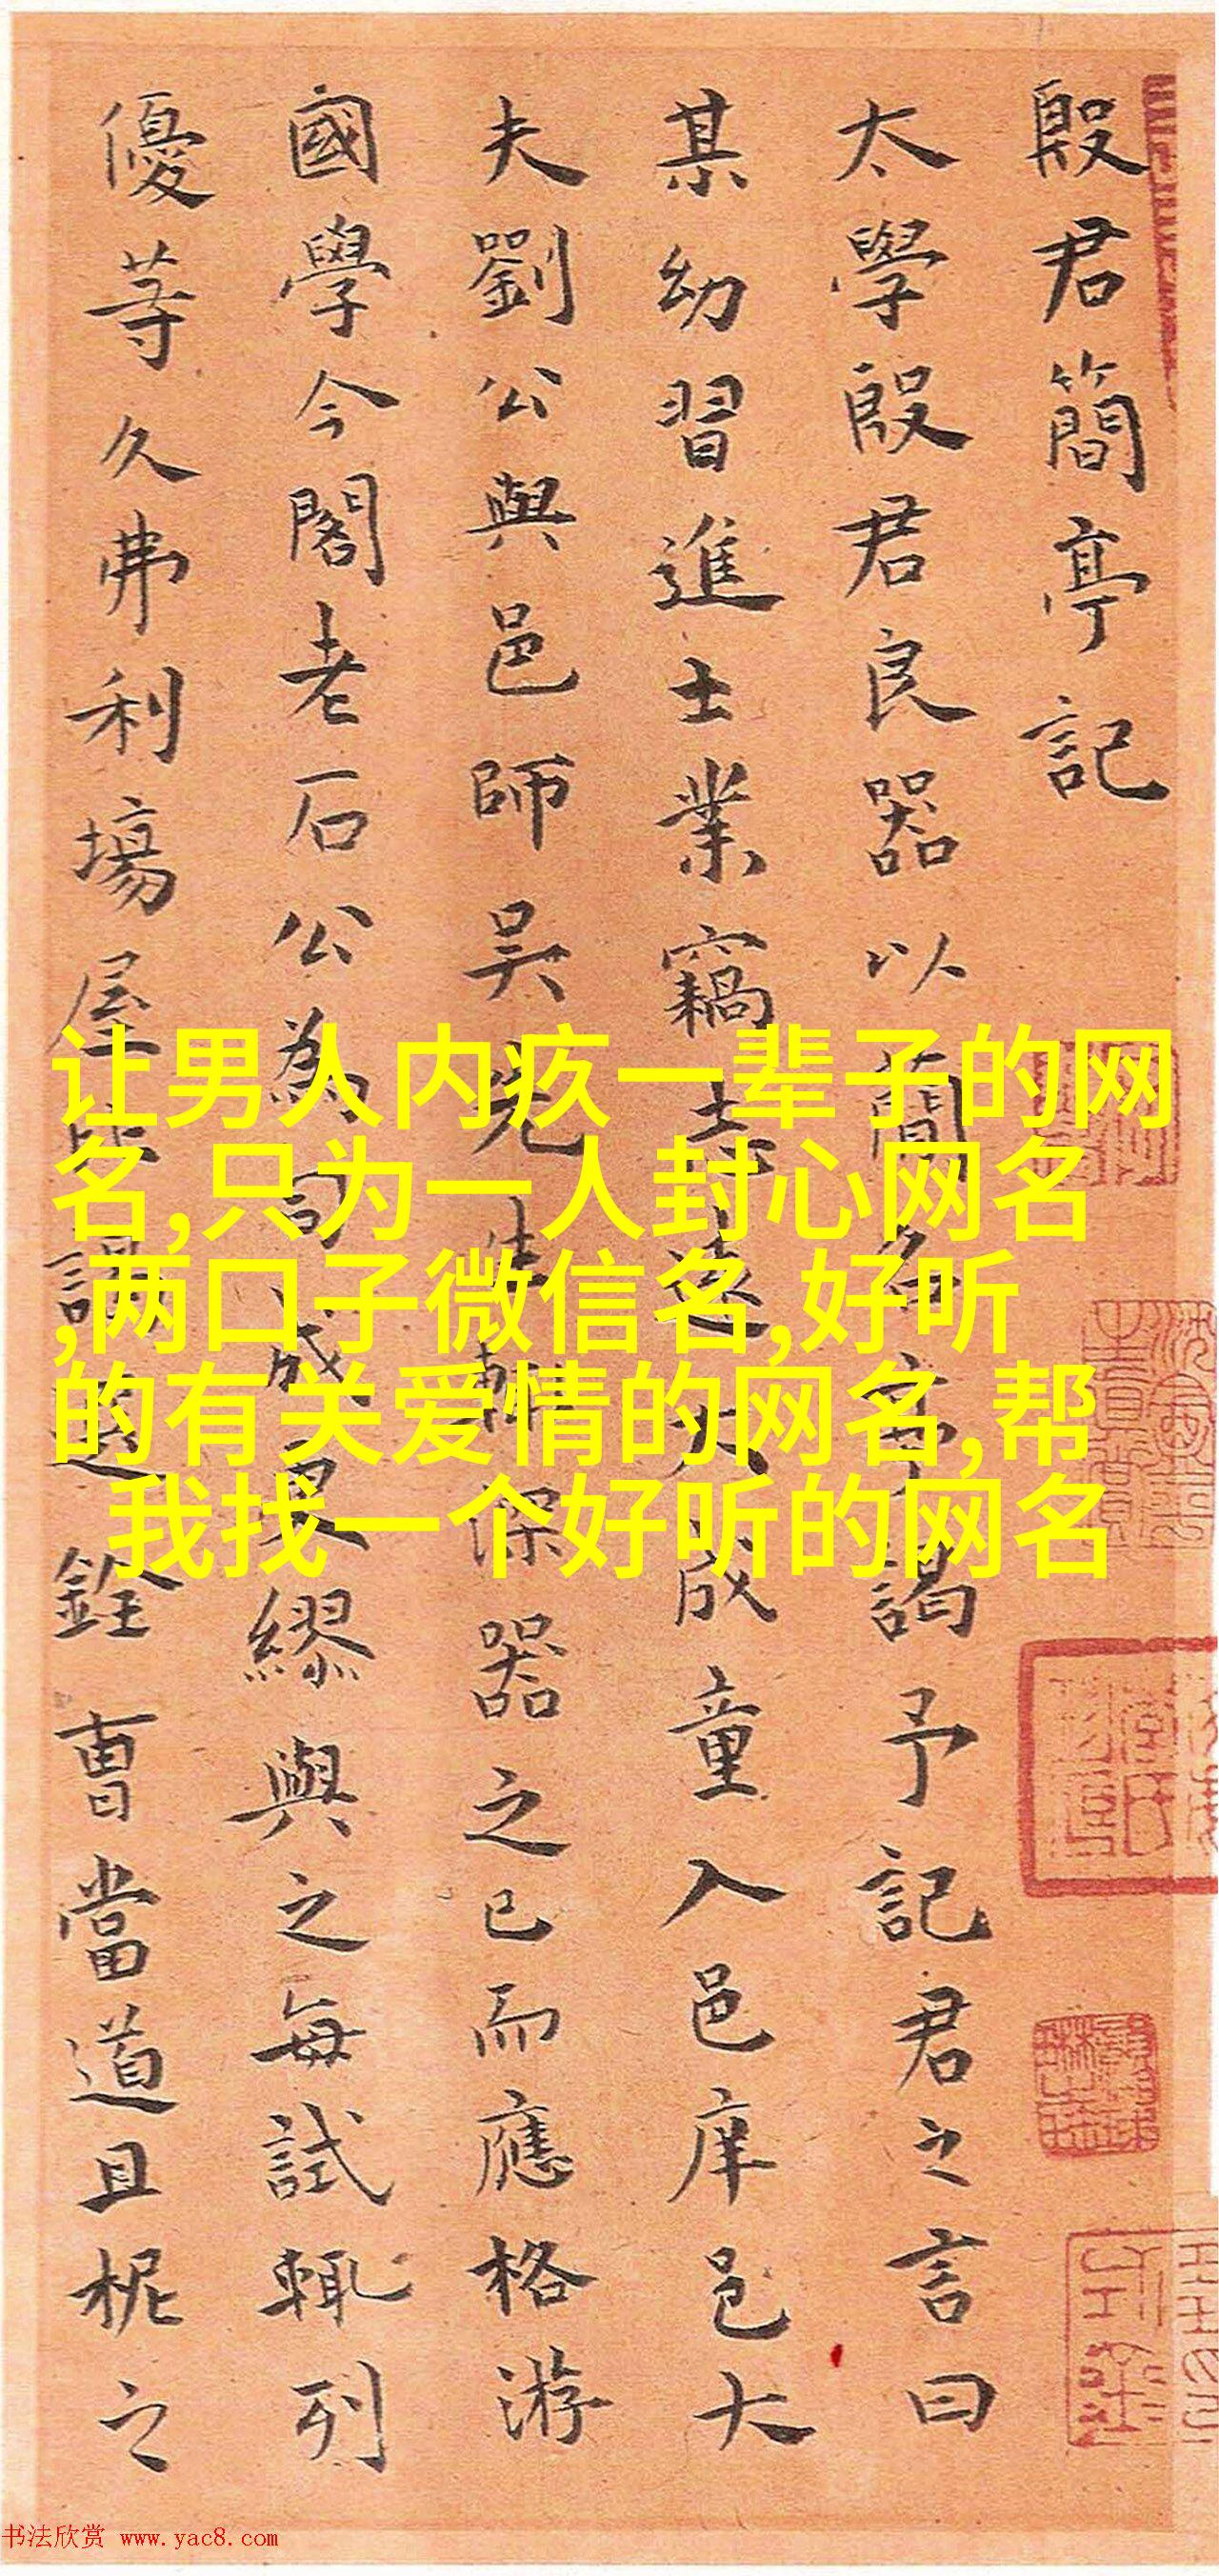 殷君簡亭記
太學殷君良器以簡名亭謁予記君之言曰
某幼習進士業竊志遠大成童入邑庠邑大
夫劉公與邑師吳先生輒深器之已而應格游
國學今閣老石公為司成繆與之每試輒列
優等久弗利場屋選銓曹當道且柅之
让男人内疚一辈子的网
名,只为一人封心网名
,两口子微信名,好听
的有关爱情的网名,帮
我找一个好听的网名
书法欣赏 www.yac8.com